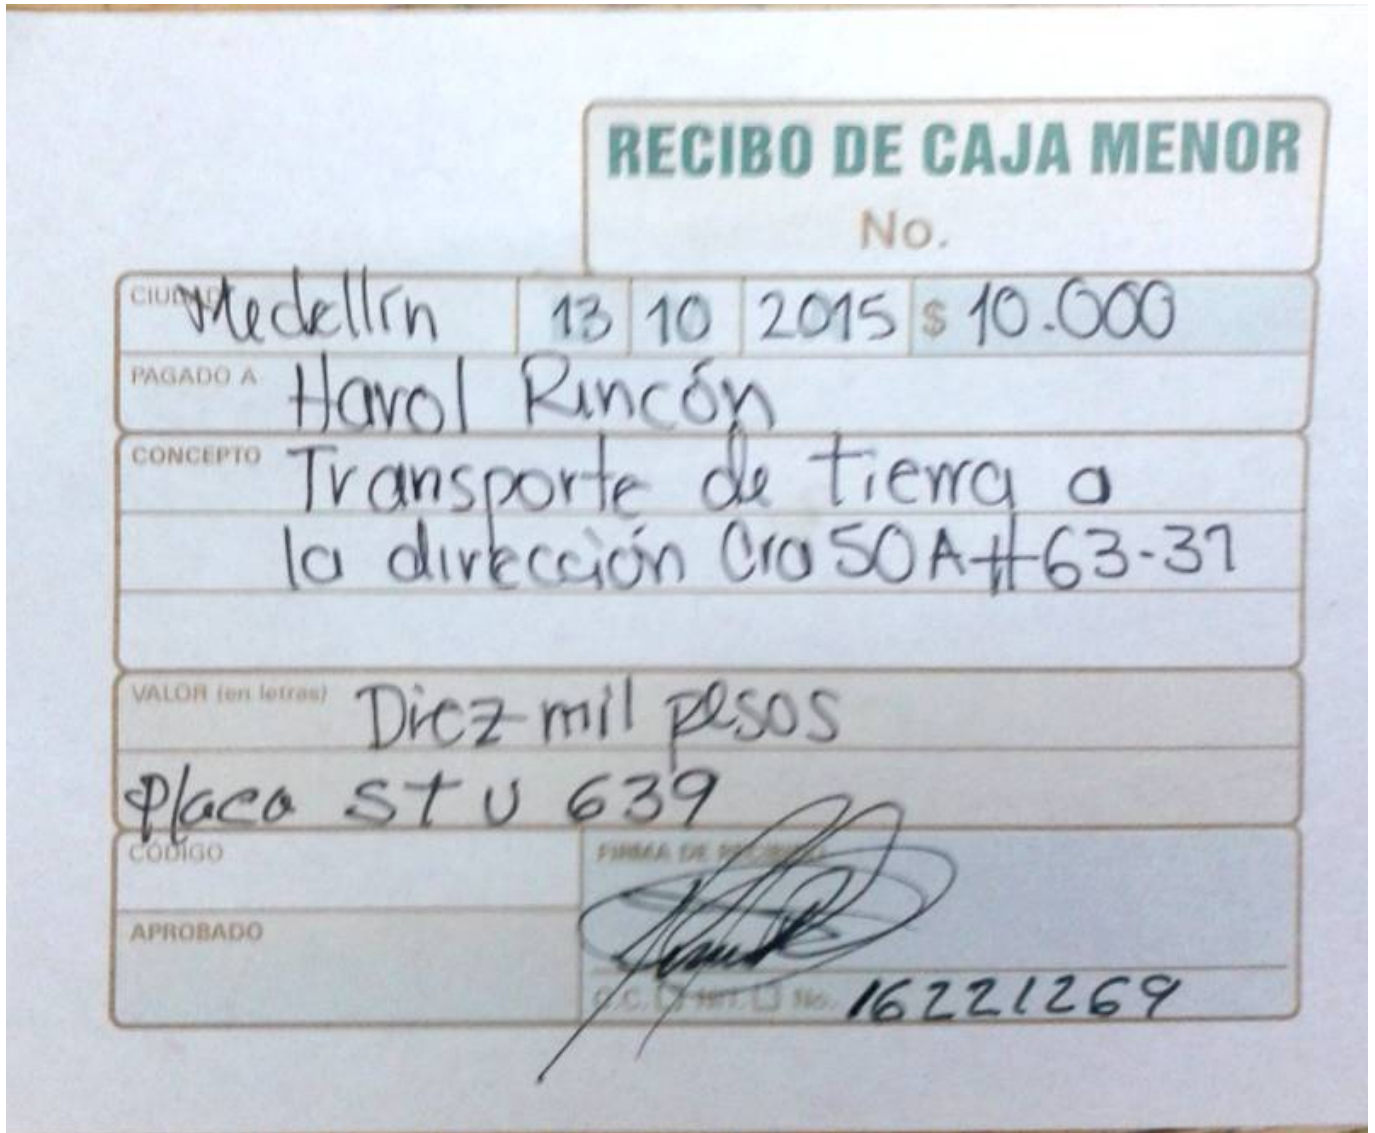 RECIBO DE CAJA MENOR
No.
CIUDAD Medellín 13 10 2015 $ 10.000
PAGADO A Harol Rincón
CONCEPTO Transporte de tierra a
la dirección Cra 50A #63-37
VALOR (en letras) Diez mil pesos
Placa STU 639
CÓDIGO
FIRMA DE RECIBIDO
APROBADO
C.C. NIT. No. 16221269